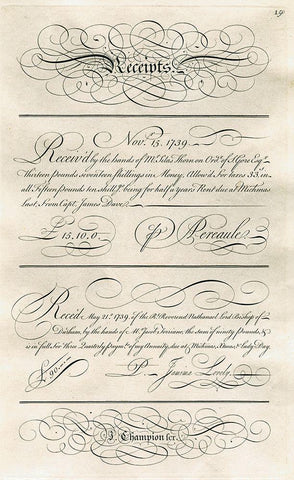 19
Receipts.
Nov.r 15. 1739
Receiv'd by the hands of Mr. John Thorn on Ord.r of I. Gore Esq.r
Thirteen pounds seventeen shillings in Money, Allow'd for taxes 33. in
all Fifteen pounds ten shill.gs being for half a Years Rent due at Michmas
last. From Capt. James Dave
£ 15.10.0. p Percaule
Receiv.d May 21.st 1739. of the R.t Reverend Nathanael Lord Bishop of
Durham, by the hands of Mr. Jacob the sum of ninety Pounds, &
is in full for Three Quarterly Paym.ts of my Annuity, due at Michmas, Xmas, & Lady Day.
£ 90. P Lovely
J. Champion scr.